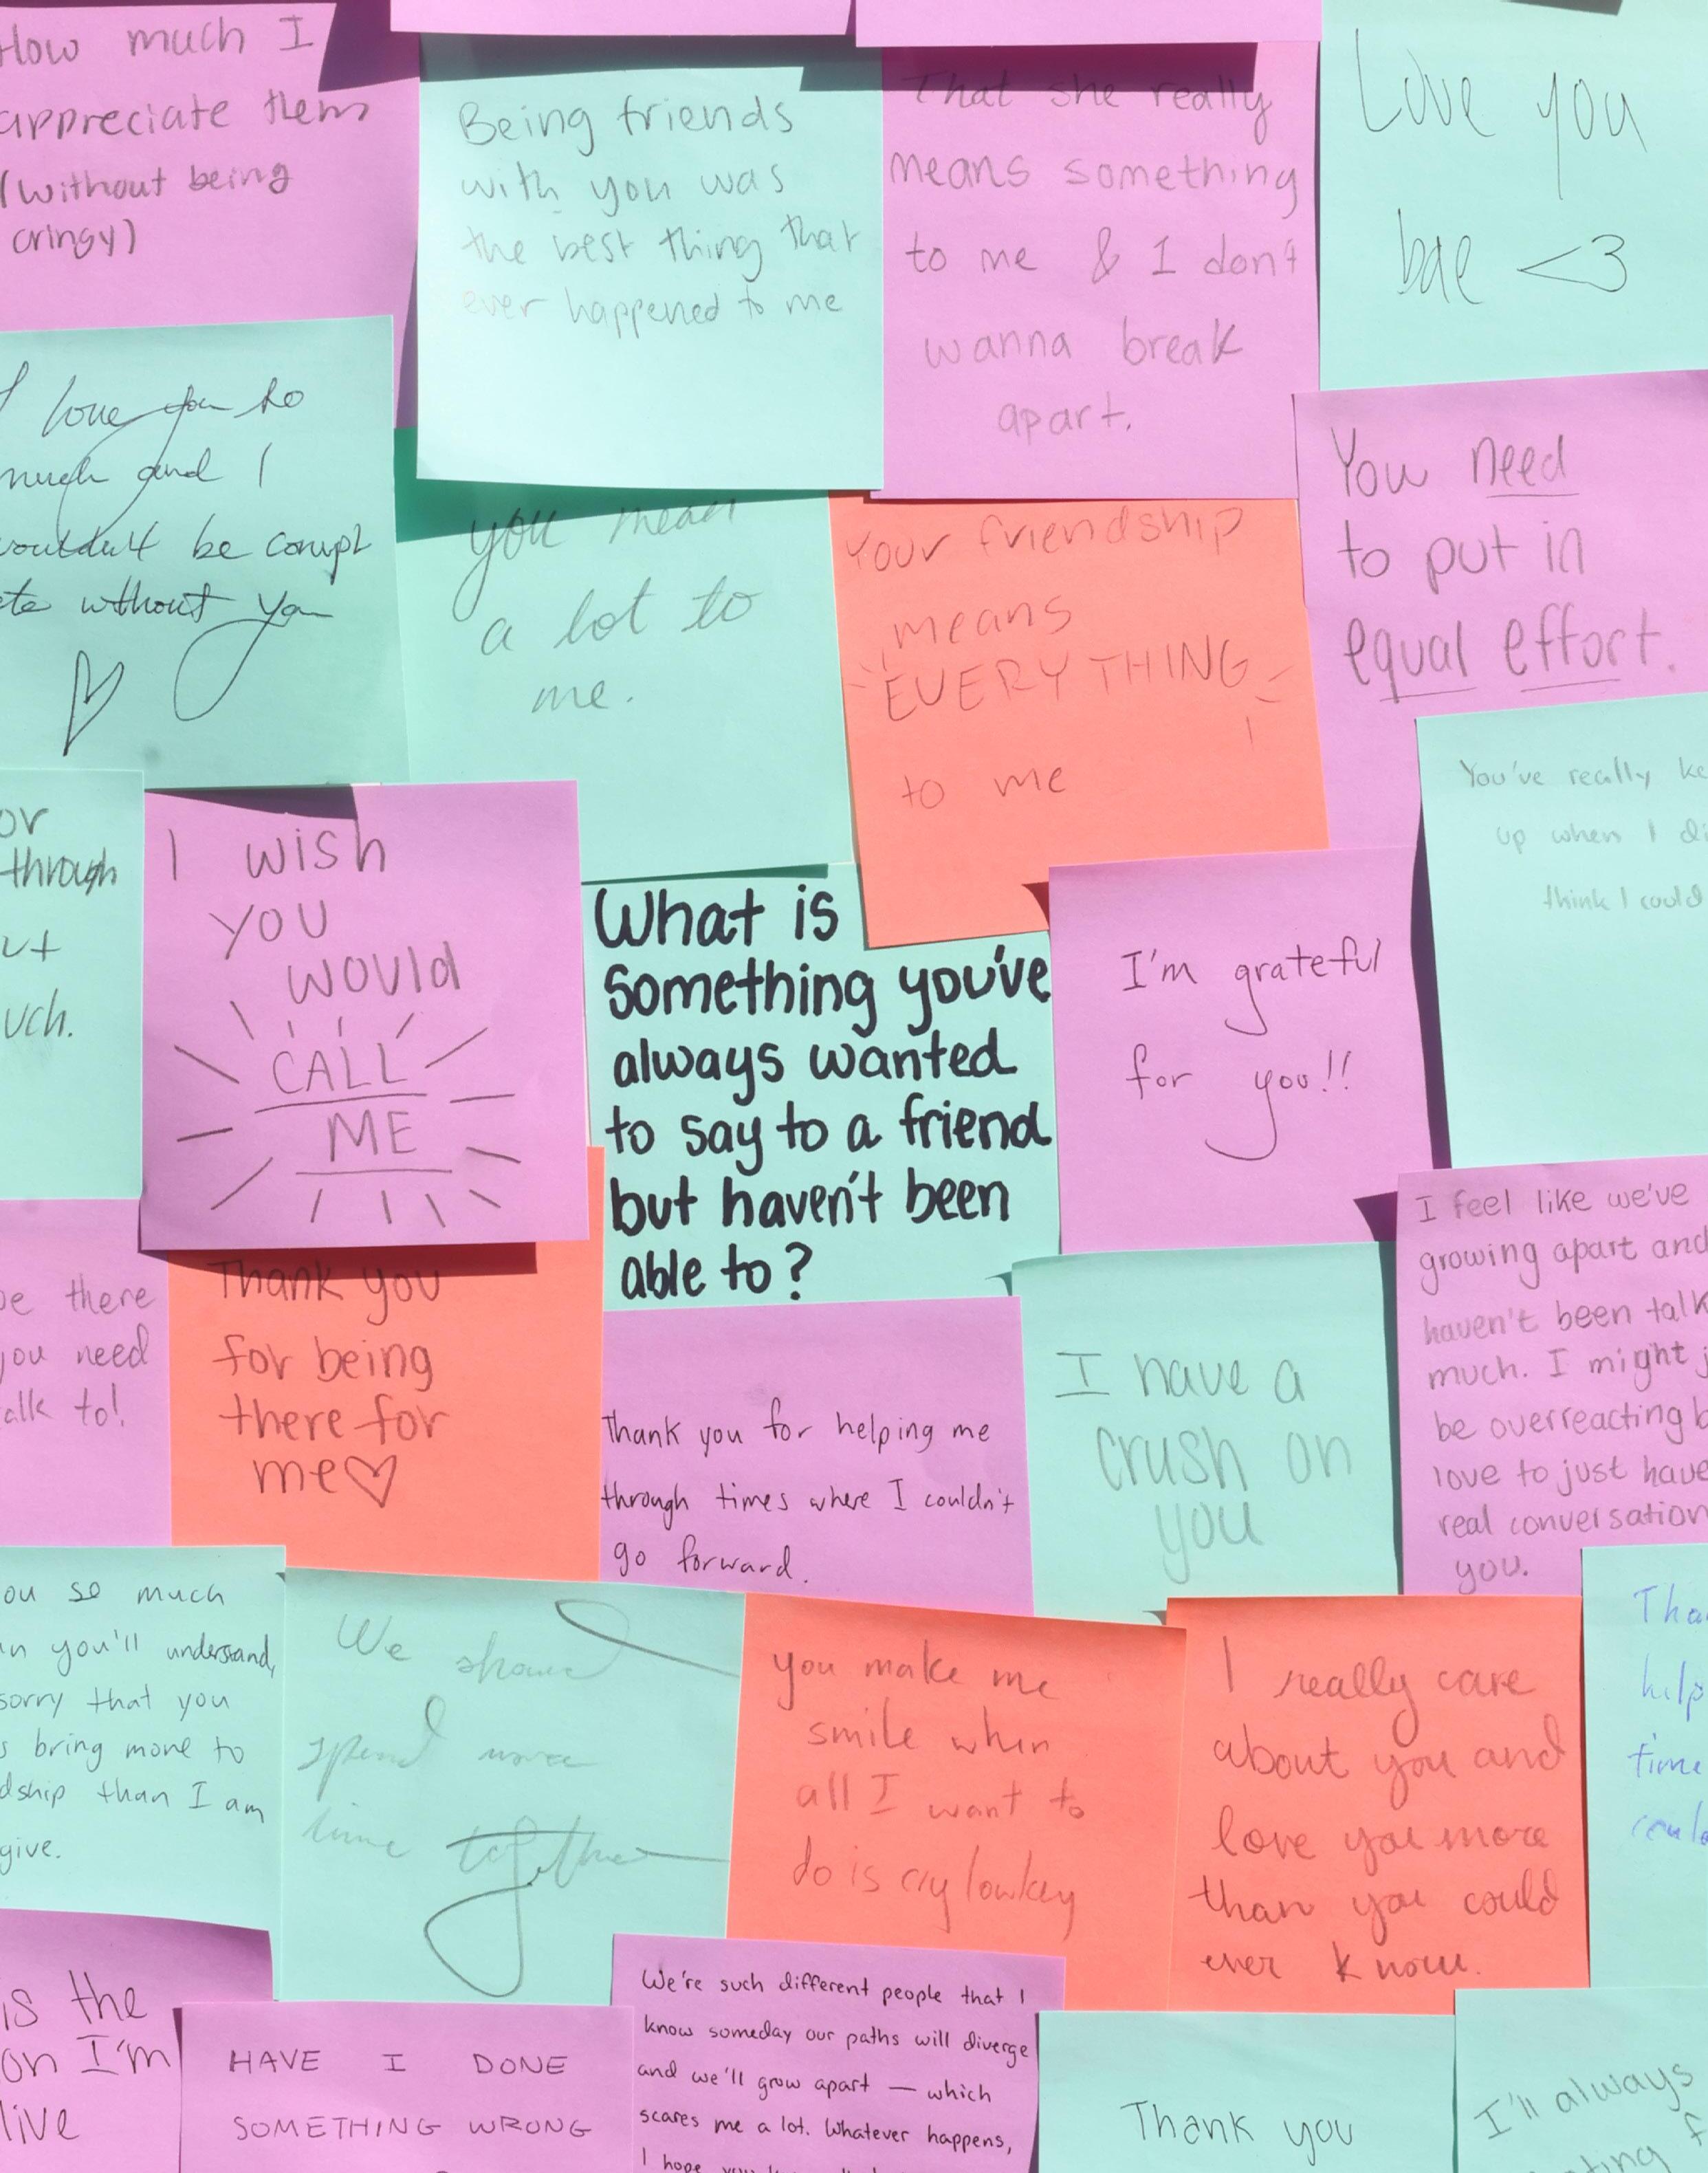 How much I
appreciate them
(without being
cringy)
Being friends
with you was
the best thing that
ever happened to me
That she really
means something
to me & I don't
wanna break
apart.
Love you
bae <3
I love you so
much and I
wouldn't be compl
ete without you
you mean
a lot to
me.
Your friendship
means
EVERYTHING
to me
You need
to put in
equal effort.
or
through
ut
uch.
I wish
you
would
CALL
ME
What is
something you've
always wanted
to say to a friend
but haven't been
able to?
I'm grateful
for you!!
You've really ke
up when I di
think I could
be there
you need
alk to!
Thank you
for being
there for
me♡
Thank you for helping me
through times where I couldn't
go forward.
I have a
crush on
you
I feel like we've
growing apart and
haven't been talk
much. I might j
be overreacting b
love to just have
real conversation
you.
ou so much
an you'll understand,
sorry that you
s bring more to
dship than I am
give.
We should
spend more
time together
you make me
smile when
all I want to
do is cry lowkey
I really care
about you and
love you more
than you could
ever know.
Tha
help
time
could
is the
on I'm
live
HAVE I DONE
SOMETHING WRONG
We're such different people that I
know someday our paths will diverge
and we'll grow apart — which
scares me a lot. Whatever happens,
I hope you
Thank you
I'll always